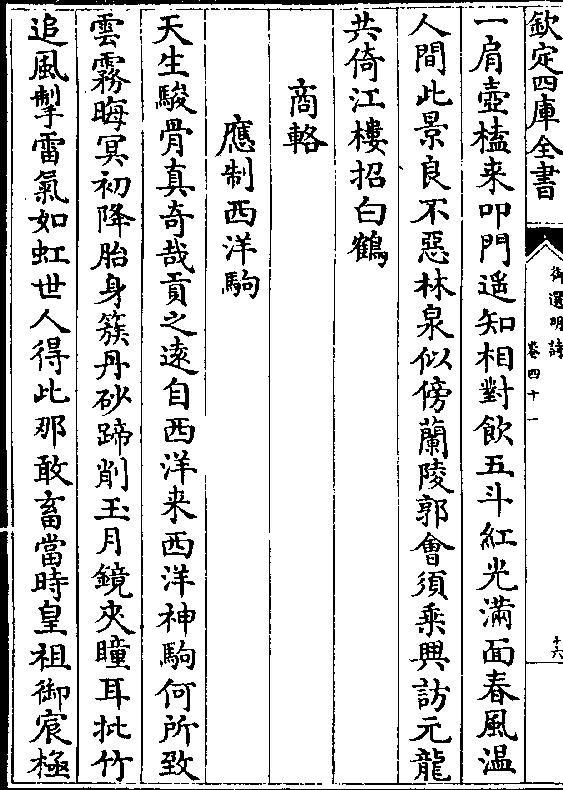 欽定四庫全書
御選明詩
卷四十一
十六
一肩壺榼来叩門遥知相對飲五斗紅光滿面春風温
人間此景良不惡林泉似傍蘭陵郭會須乘興訪元龍
共倚江樓招白鶴
商輅
應制西洋駒
天生駿骨真奇哉貢之逺自西洋来西洋神駒何所致
雲霧晦冥初降胎身簇丹砂蹄削玉月鏡夾瞳耳批竹
追風掣雷氣如虹世人得此那敢畜當時皇祖御宸極